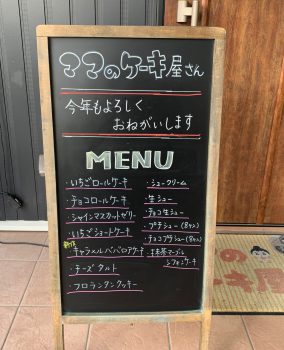 ママのケーキ屋さん
今年もよろしく
おねがいします
MENU
・いちごロールケーキ
・チョコロールケーキ
・シャインマスカットゼリー
・いちごショートケーキ
・キャラメルババロアケーキ
・チーズタルト
・フロランタンクッキー
・シュークリーム
・生シュー
・チョコ生シュー
・プチシュー(8ヶ入)
・チョコプチシュー(8ヶ入)
・抹茶マーブル
シフォンケーキ